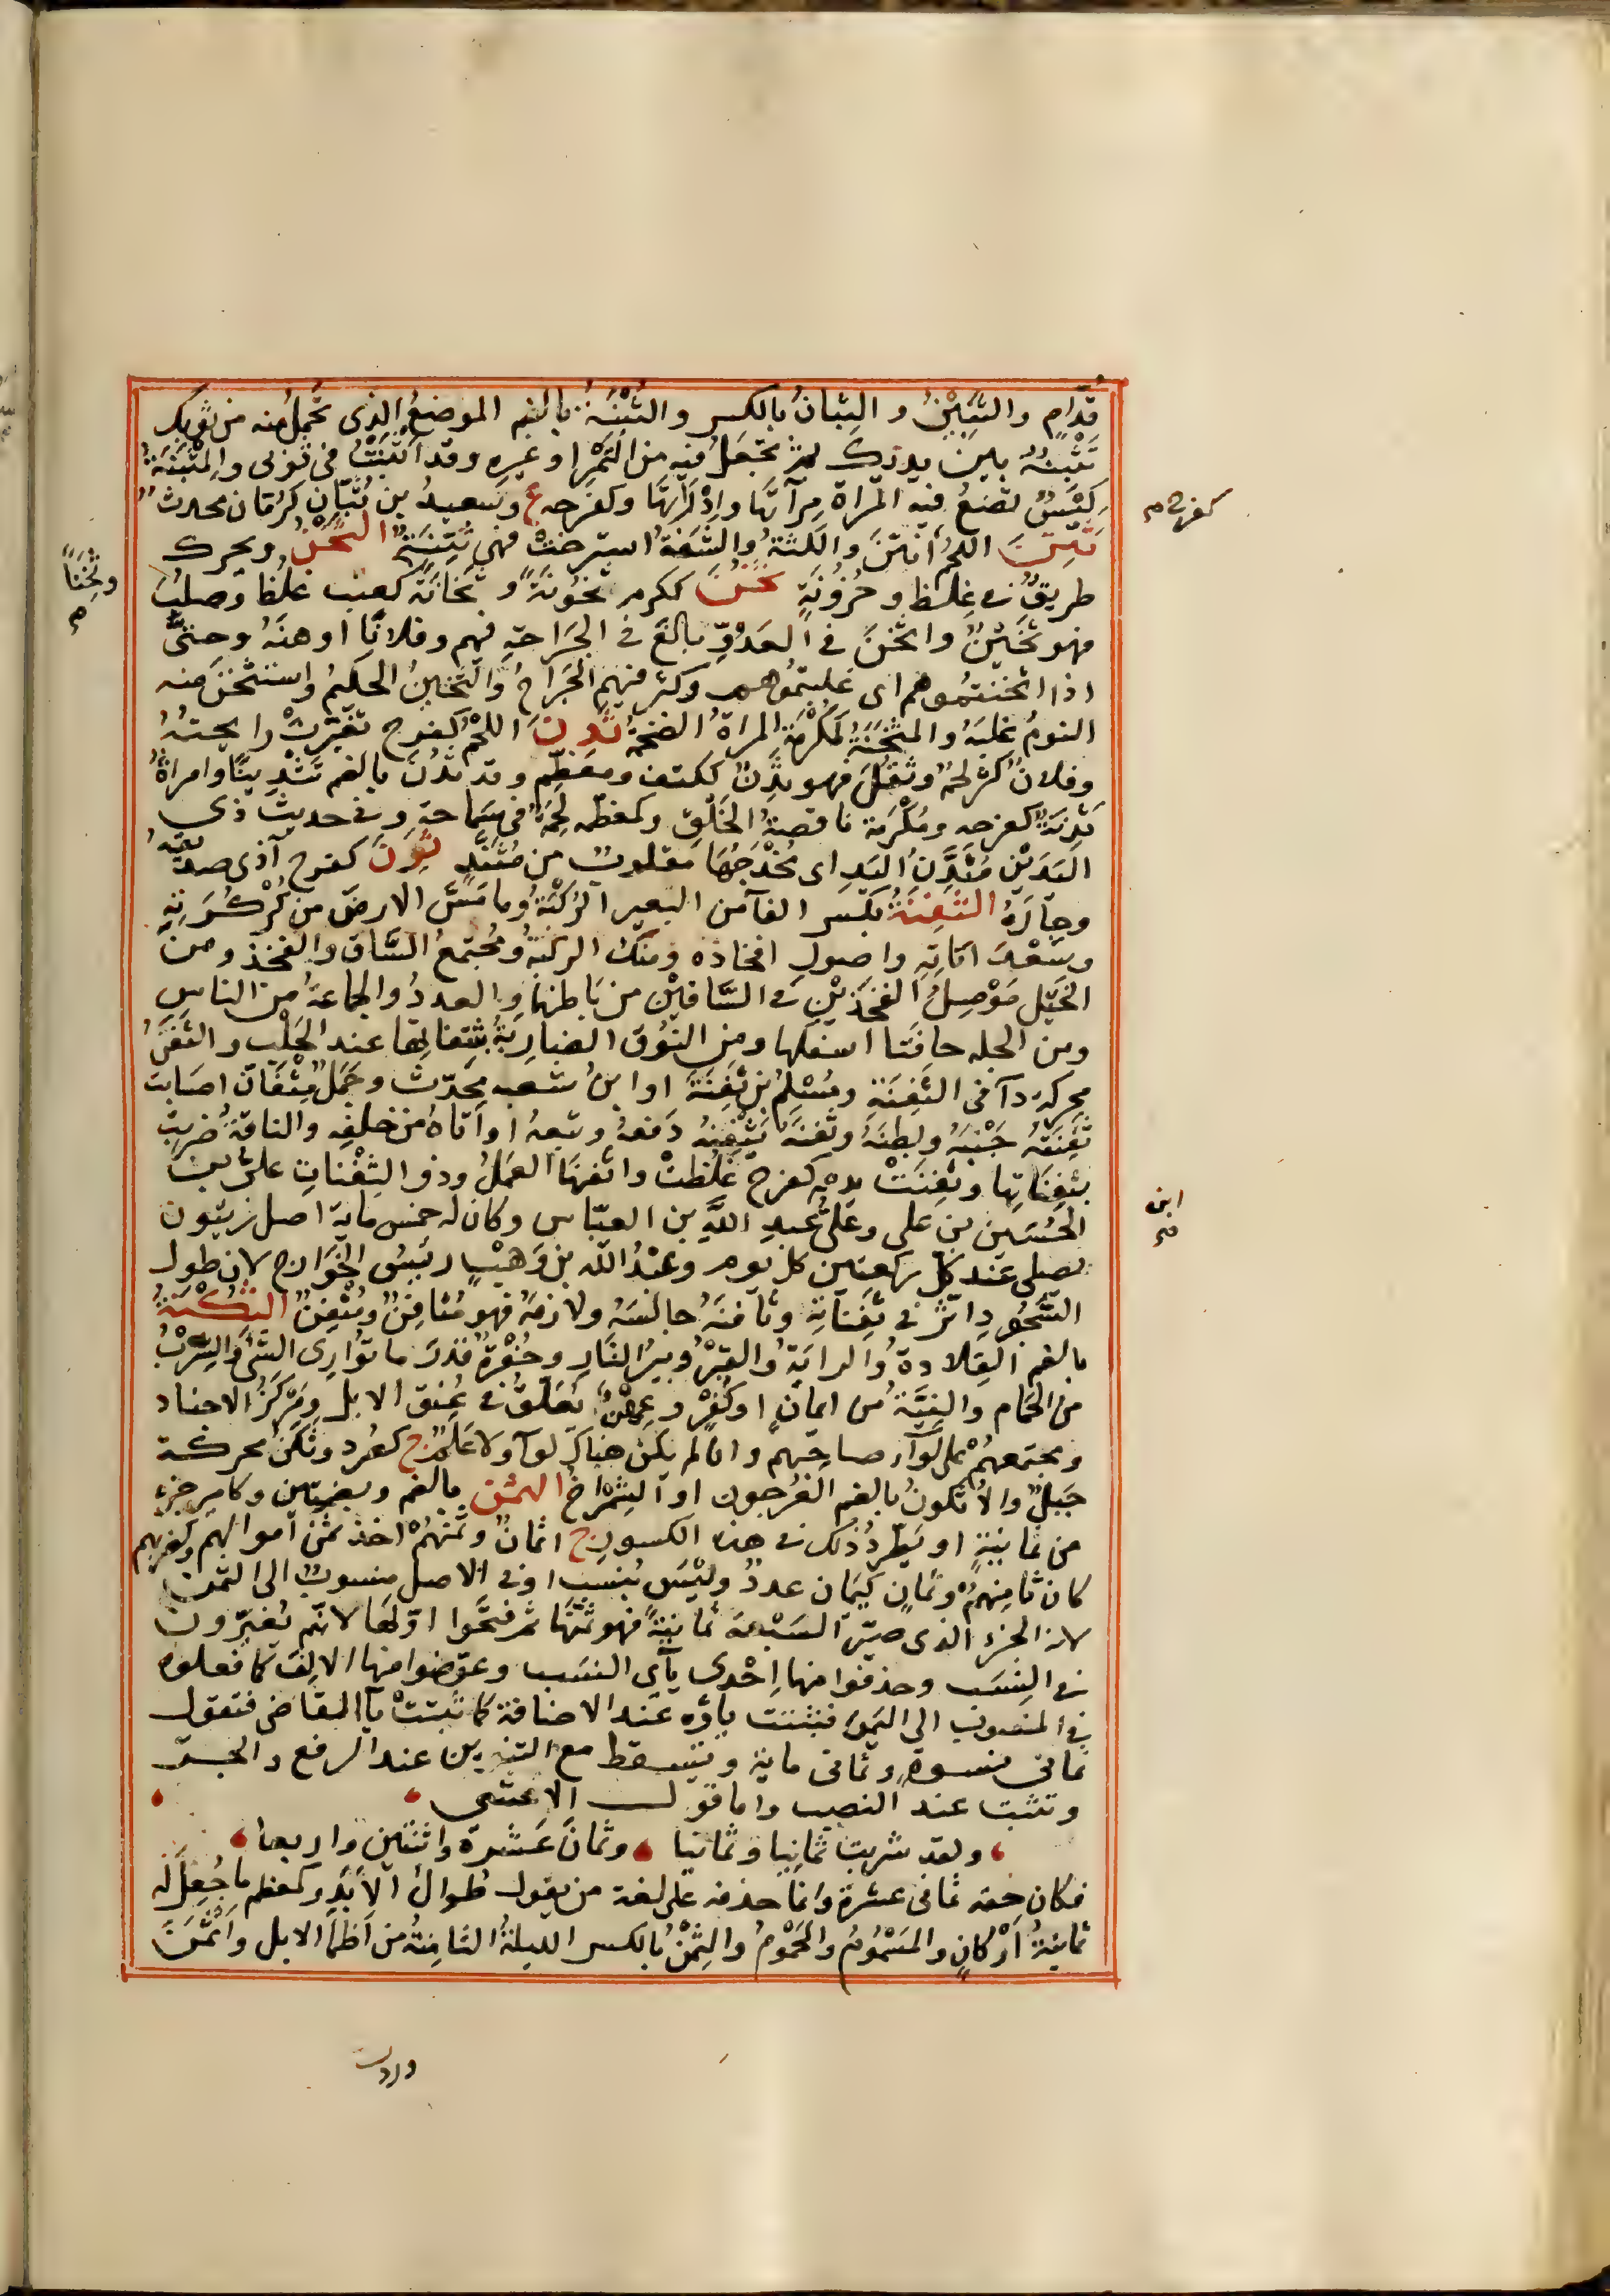 قدّامٍ والثَّبِينُ والثِبانُ بالكسر والثُبْنَةُ بالضم الموضعُ الذى تَحْمِلُ فيه من ثوبك
تَثْبِنُهُ بين يديك ثم تجعلُ فيه من التَمْرِ او غيره وقد اَثْبَنْتُ فى ثوبى والمَثْبَنَةُ
كِيْسٌ تضعُ فيه المرأة مِرآتَها واَدَاتَهَا وكفرحه ع وسعيدُ بن ثُبّانٍ كرُمّان محدثٌ
ثَتِنَ اللحمُ اَنْتَنَ واللثةُ والشَفَةُ استرخَتْ فهى ثَتِنَةٌ الثَّخْنُ ويحرك
طريقٌ فى غِلَظٍ وحُزُونَةٍ ثَخُنَ ككرم ثُخُونَةً وثَخَانَةً كعنب غلُظَ وصلُبَ
فهو ثَخينٌ واثخنَ فى العَدُوِّ بالغَ فى الجَراحةِ فيهم وفلانًا اوهنَهُ وحتىَّ
اذا اثخنتموهم اى غلبتموهم وكثر فيهم الجَراحُ والثَّخينُ الحليمُ واستثخنَ منه
النومُ غلبَهُ والمثْخَنَةُ كمَكْرَمَة المراةُ الضخمةُ ثَدِنَ اللحمُ كفرح تغيّرتْ رايحتُهُ
وفلانٌ كثر لحمُهُ وثقُلَ فهو ثَدِنٌ ككتف ومعَظَّم وقد ثُدِّنَ بالضم تَثْدِينًا وامراةٌ
ثَدِنَةٌ كفرحه ومُكْرَمة ناقصةُ الخَلْقِ وكمعظّمه لَحِمَةٌ فى سَماحةٍ وفى حديث ذى
اليَدَيْنِ مُثَدَّنِ اليَدِ اى مُخْدَجُهَا مقلوبٌ من مُثَنَّدٍ ثَرِنَ كفرح آذى صديقَهُ
وجارَهُ الثَّفِنَةُ بكسر الفآ من البعير الرُكْبَةُ وما مَسَّ الارضَ من كُرْكُرَتِهِ
وسَعْدَاناتِهِ واصولِ افخاذه ومنك الركبةُ ومُجتمعُ السَّاقِ والفخذ ومن
الخيْلِ مَوْصِلُ الفَخَذَيْنِ فى السَّاقَيْنِ من بَاطنها والعددُ والجماعةُ من الناسِ
ومن الجله حافَتَا اسفلها ومن النُوْقِ الضارِبَةُ بثَفِناتِها عند الحَلْبِ والثَّفَنُ
محركه دآ فى الثَفِنَةِ ومُسْلِمُ بن ثَفِنَةَ او ابنُ شعبه محدّث وجَمَلٌ مِثْفَانٌ اصابت
ثَفِنَتُهُ جَنْبَهُ وبطنَهُ وثفنَهُ يَثْفِنُهُ دَفعهُ وتبعهُ او اتاهُ من خلفِه والناقةُ ضربت
بثفِناتِها وثفِنَتْ يده كفرح غلُظتْ واثفنَها العَمَلُ وذو الثَفِناتِ علىّ بن
الحُسَين بن على وعلىُّ بن عبدِ اللَّهِ بن العبّاس وكان له خمس ماية اصل زيتون
يصلى عند كل ركعتين كل يوم وعبْدُ اللّه بن وَهبٍ رئيسُ الخَوارج لان طول
السُّجُودِ اثّر فى ثَفِناتِه وثافنَهُ جالسَهُ ولازمَهُ فهو مُثافِنٌ ومُثْفِنٌ الثُكْنَةُ
بالضم القِلادةُ والرايَةُ والقبْرُ وبيرُ النّارِ وحُفْرةٌ قدرَ ما تُوارِى الشئَ والسِرْبُ
من الحَمام والنِيَّةُ من ايمانٍ او كُفْرٍ وعِهْنٌ يُعَلَّقُ فى عُنق الابل ومَرْكزُ الاجناد
ومجتمعهُمْ على لوآ صاحبهم وان لم يكن هناك لوآ ولا عَلَمٌ ج كصُرَد وثَكَنٌ محركة
جَبَلٌ والاُثْكونُ بالضم العُرجون او الشِمْراخُ الثمُنُ بالضم وبضمتين وكامير جزء
من ثمانيةٍ او يَطّردُ ذلك فى هذه الكسور ج اثمانٌ وثمنَهُمْ اخذ ثُمْنَ اموالهم وكضربهم
كان ثامِنهمُ وثَمانٍ كيَمانٍ عددٌ وليْسَ بنسب او فى الاصل منسوبٌ الى الثُمْن
لانه الجزء الذى صيّر السَبْعة ثمانيةً فهو ثُمُنُها ثم فتحوا اوّلها لانهم يُغيّرون
فى النِسَب وحذفوا منها اِحْدى يآئى النسَب وعوّضوا منها الالِفَ كما فعلوه
فى المنسوب الى اليَمَن فثبتت ياؤه عند الاضافة كما ثبتتْ يآ القاضى فتقول
ثمانى نسوة وثمانى ماية وتسقط مع التنوين عند الرفع والجرّ
وتثبت عند النصب واما قول الاعشى
ولقد شربت ثمانيا وثمانيا وثمانَ عَشرة واثنتين واربعا
فكان حقه ثمانى عشرة وانما حذفه على لغة من يقول طُوالُ الاَيْدِ وكمعظم ما جُعِلَ له
ثمانيةُ اَرْكانٍ والمَسْمُومُ والمحمُومُ والثِمْنُ بالكسر الليلةُ الثامِنةُ من اَظْمآ الابل واَثْمَنَ
كفرح م
وثِخَنًا
م
ابن
م
وردت